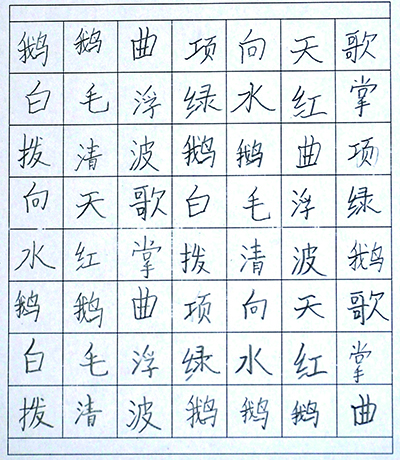 鹅鹅曲项向天歌
白毛浮绿水红掌
拨清波鹅鹅曲项
向天歌白毛浮绿
水红掌拨清波鹅
鹅鹅曲项向天歌
白毛浮绿水红掌
拨清波鹅鹅鹅曲